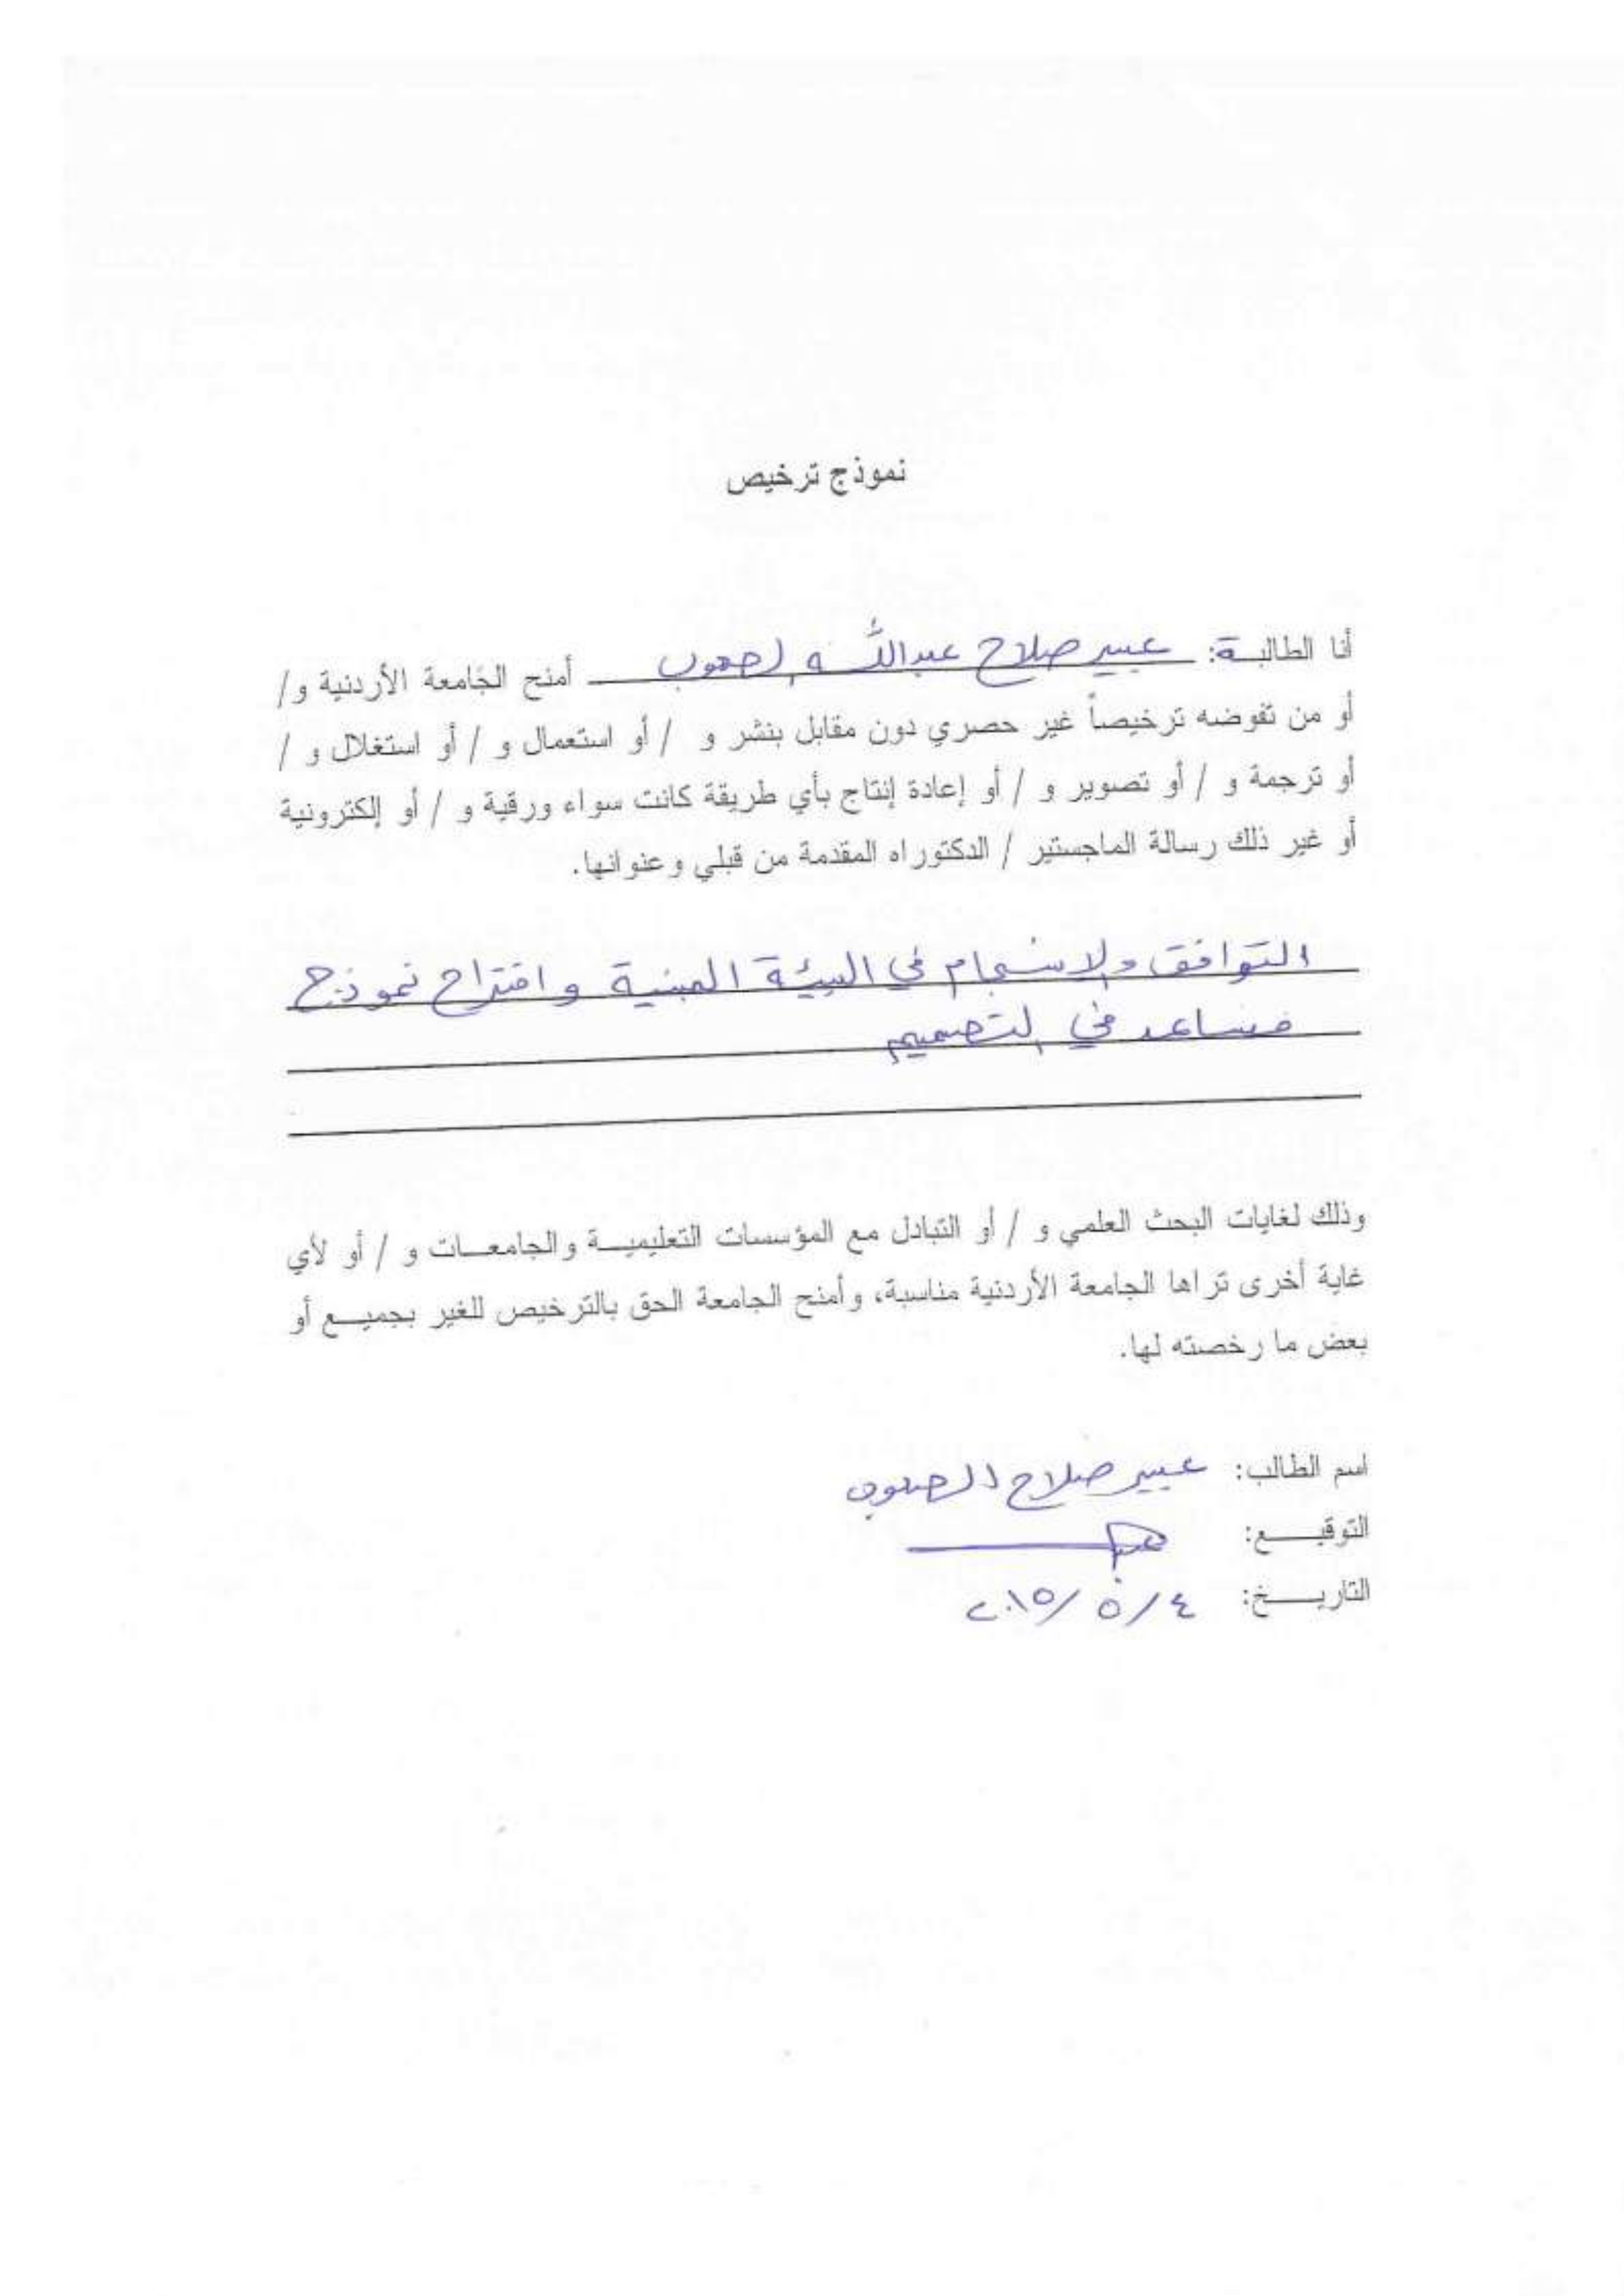 نموذج ترخيص
أنا الطالبة: عبير صلاح عبدالله أمنح الجامعة الأردنية و/
أو من تفوضه ترخيصاً غير حصري دون مقابل بنشر و / أو استعمال و / أو استغلال و /
أو ترجمة و / أو تصوير و / أو إعادة إنتاج بأي طريقة كانت سواء ورقية و / أو إلكترونية
أو غير ذلك رسالة الماجستير / الدكتوراه المقدمة من قبلي وعنوانها.
التوافق والانسجام في البيئة المبنية واقتراح نموذج
مساعد في التصميم
وذلك لغايات البحث العلمي و / أو التبادل مع المؤسسات التعليمية والجامعات و / أو لأي
غاية أخرى تراها الجامعة الأردنية مناسبة، وأمنح الجامعة الحق بالترخيص للغير بجميع أو
بعض ما رخصته لها.
اسم الطالب: عبير صلاح
التوقيع:
التاريخ: ٤/ ٥/ ٢٠١٥